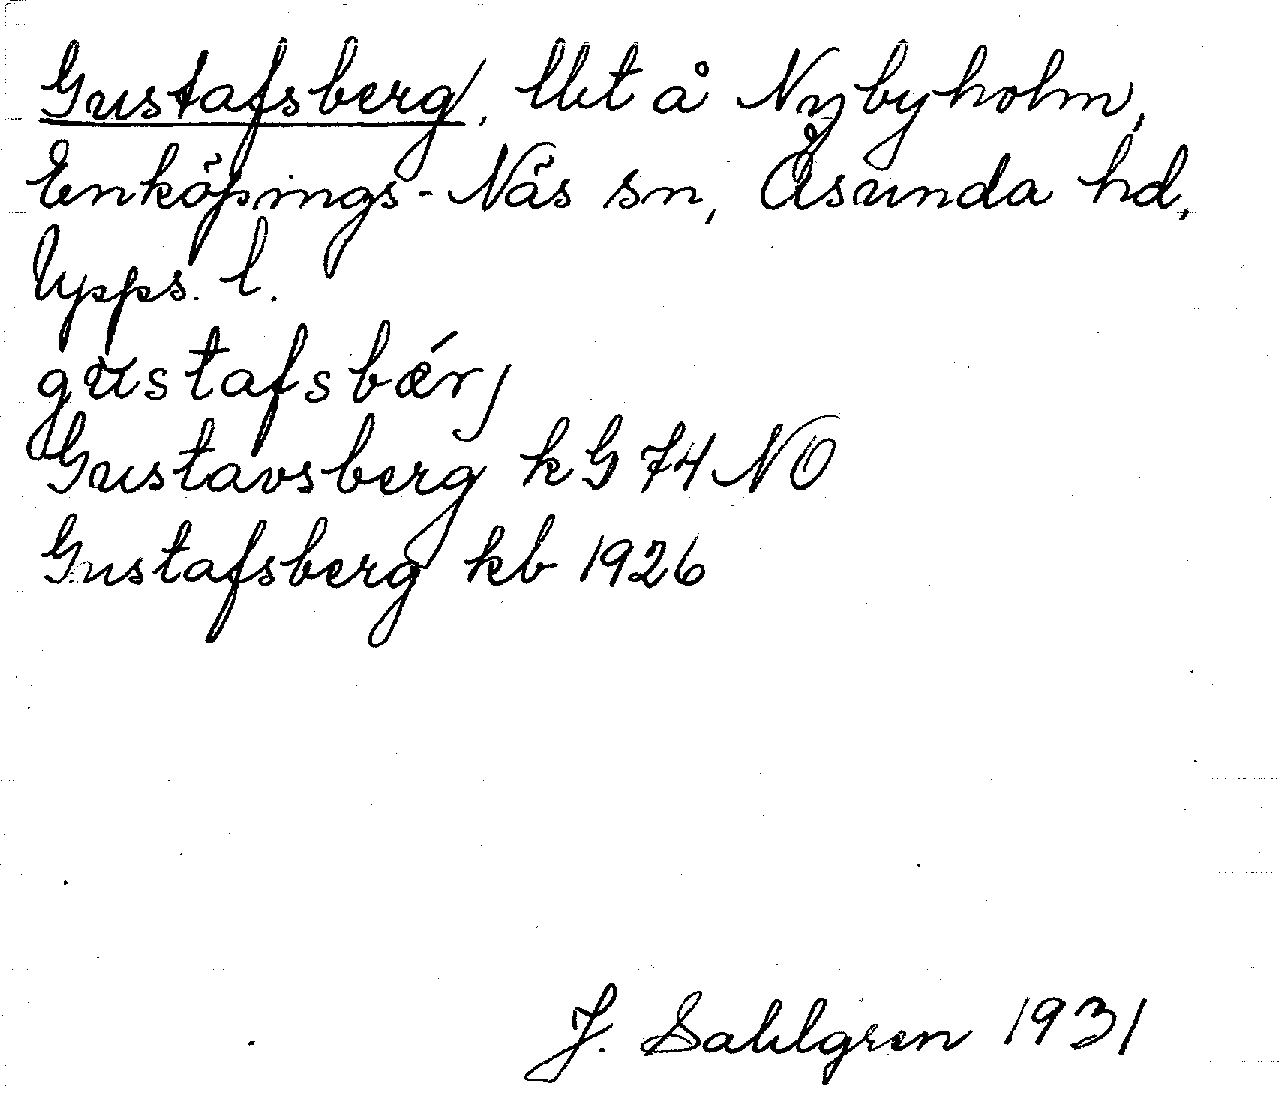 Gustafsberg, lht å Nybyholm,
Enköpings-Näs sn, Åsunda hd,
Upps. l.
gustafsbǽrj
Gustavsberg kG 74 NO
Gustafsberg kb 1926
J. Sahlgren 1931